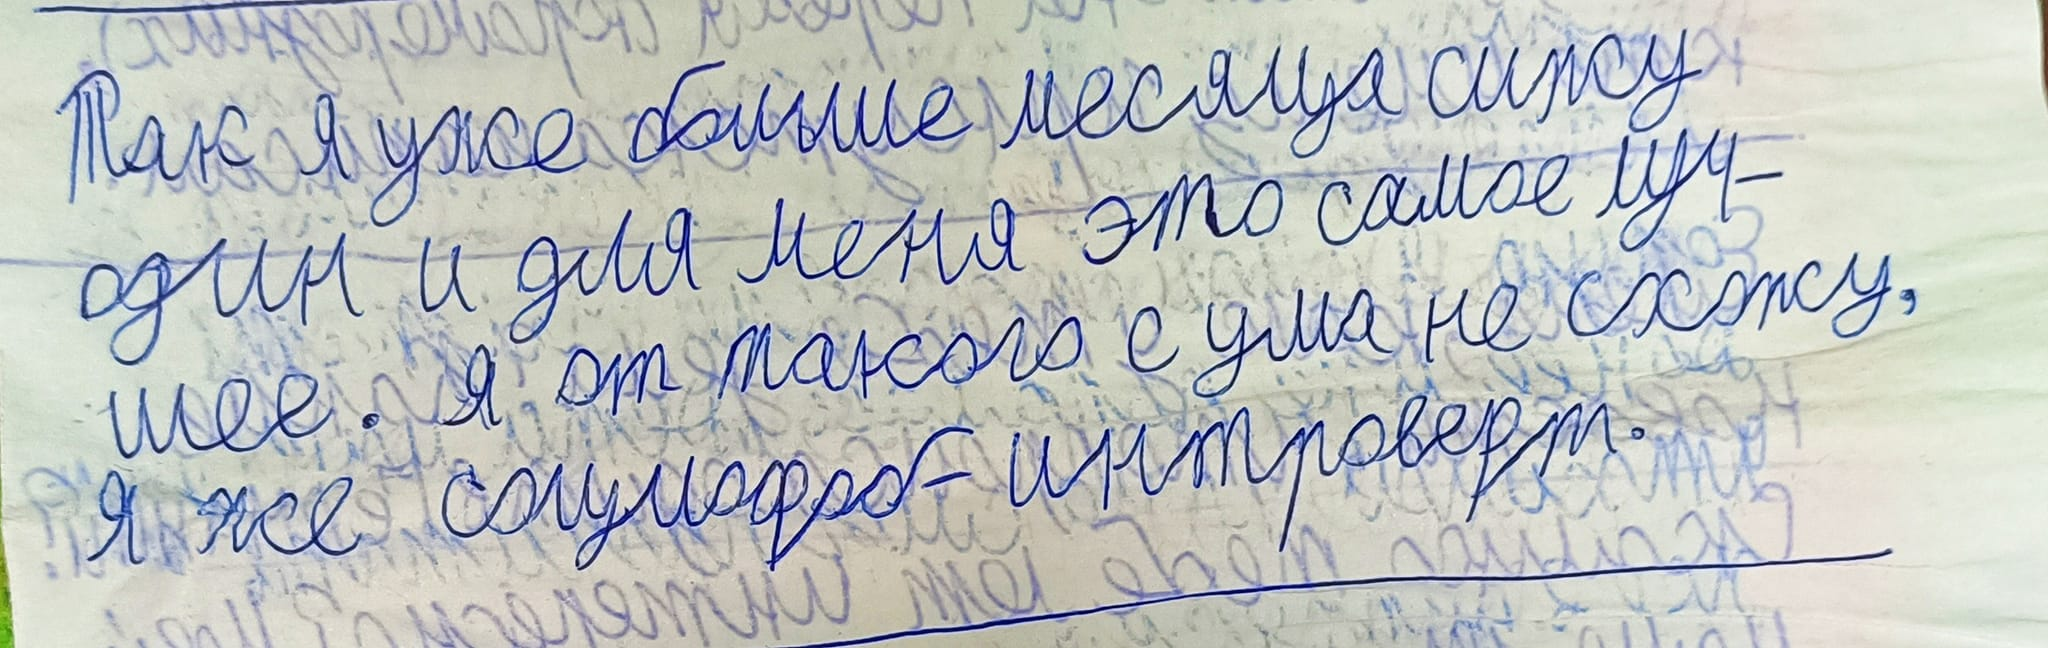 Так я уже больше месяца сижу
один и для меня это самое луч-
шее. Я от такого с ума не схожу,
я же социофоб-интроверт.